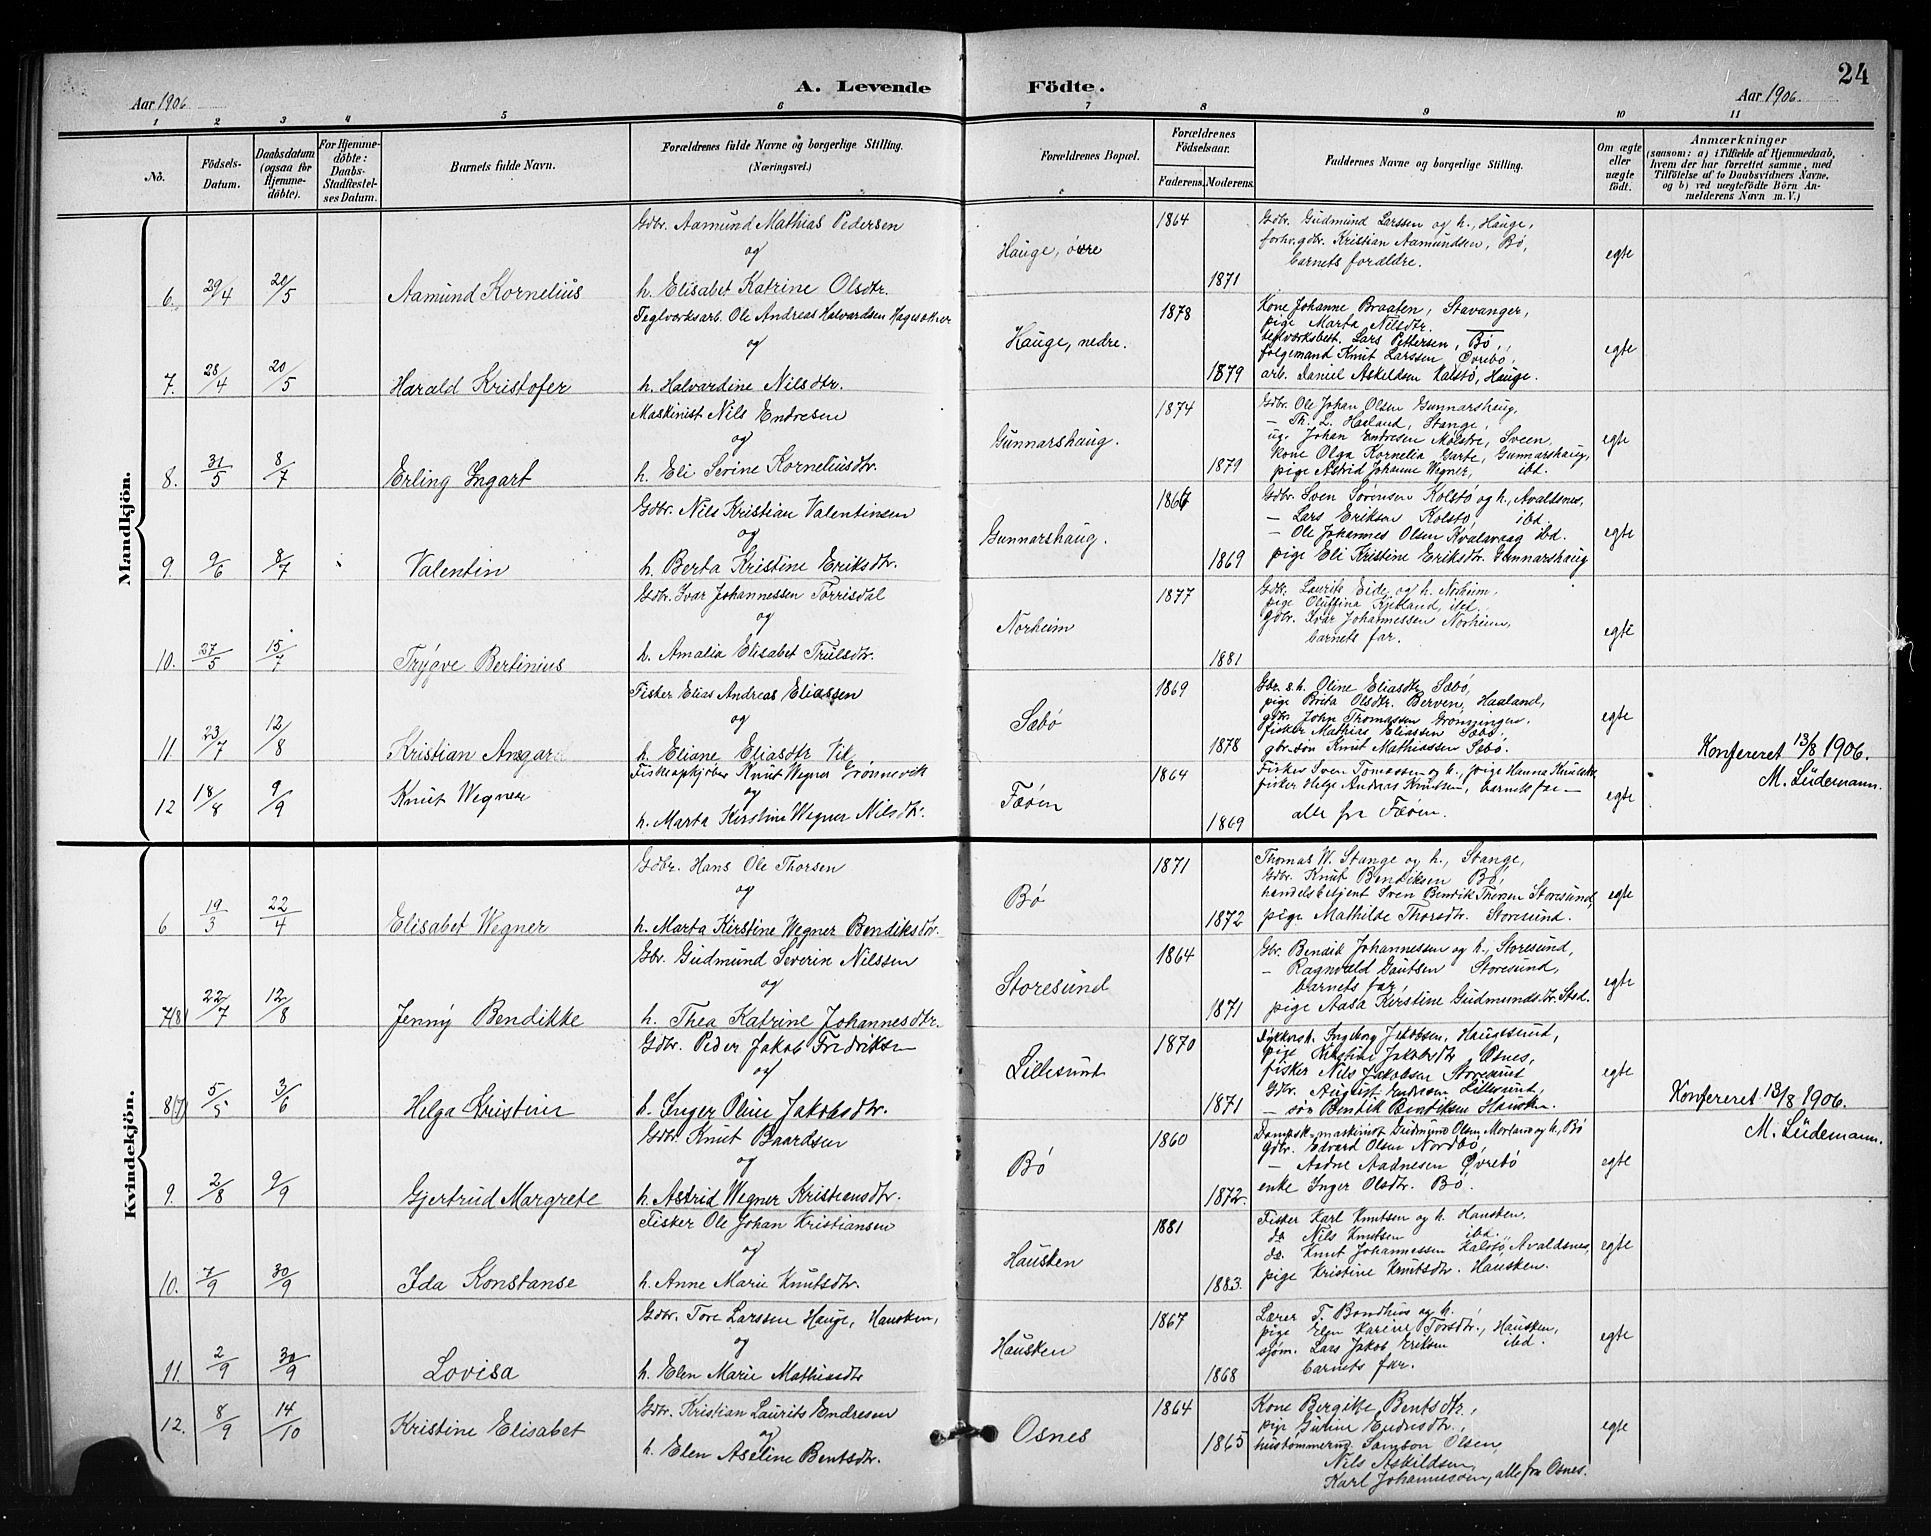 24
Aar 1906
A. Levende
Födte.
Aar 1906.
1 2 3 4 5 6 7 8 9 10 11
No.
Födsels-
Datum.
Daabsdatum
(ogsaa for
Hjemme-
döbte).
For Hjemme-
döbte:
Daabs-
Stadfæstel-
ses Datum.
Barnets fulde Navn.
Forældrenes fulde Navne og borgerlige Stilling.
(Næringsvei.)
Forældrenes Bopæl.
Forældrenes
Födselsaar.
Faderens. Moderens.
Faddernes Navne og borgerlige Stilling.
Om ægte
eller
uægte
födt.
Anmærkninger
(saasom: a) i Tilfælde af Hjemmedaab,
hvem der har forrettet samme, med
Tilföielse af to Daabsvidners Navne.
og b) ved uægtefödte Börn An-
melderens Navn m. V.)
Mandkjön.
6. 29/4 20/5 Aamund Kornelius
Gdbr. Aamund Mathias Pedersen
og
h. Elisabet Katrine Olsdtr.
Hauge, øvre
1864
1871
Gdbr. Gudmund Larssen og h., Hauge,
forhv. gdbr. Kristian Aamundsen, Bø,
barnets forældre.
egte
7. 28/4 20/5 Harald Kristofer
Teglverksarb. Ole Andreas Halvardsen
og
h. Halvardine Nilsdtr.
Hauge, nedre.
1878
1879
Kone Johanne Braaten, Stavanger,
pige Marta Nilsdtr.
Lars Pettersen, Bø,
følgemand Knut Larssen Øvrebø,
arb. Daniel Askildsen Kalstø, Hauge.
egte
8. 31/5 8/7 Erling Ingart
Maskinist Nils Endresen
og
h. Eli Sevine Korneliusdtr.
Gunnarshaug.
1874
1879
Gdbr. Ole Johan Olsen Gunnarshaug,
— Th. L. Haaland, Stange,
ug. Johan Endresen Mølstre, Sveen,
kone Olga Kornelia Garte, Gunnarshaug,
pige Astrid Johanne Wegner, ibd.
egte
9. 9/6 8/7 Valentin
Gdbr. Nils Kristian Valentinsen
og
h. Berta Kristine Eriksdtr.
Gunnarshaug.
1867
1869
Gdbr. Sven Sørensen Kolstø og h., Avaldsnes,
— Lars Eriksen Kolstø ibd.
— Ole Johannes Olsen Kvalavaag ibd.
pige Eli Kristine Eriksdtr. Gunnarshaug
egte
10. 27/5 15/7 Trygve Bertinius
Gdbr. Ivar Johannessen Torrisdal
og
h. Amalia Elisabet Trulsdtr.
Norheim
1877
1881
Gdbr. Laurits Eide og h. Norheim,
pige Oluffina Kjetland, ibd.
gdbr. Ivar Johannessen Norheim,
barnets far.
egte
11. 23/7 12/8 Kristian Ansgar
Fisker Elias Andreas Eliassen
og
h. Eliane Eliasdtr. Vik
Sæbø
1869
1878
Gbr. s. h. Oline Eliasdtr Sæbø,
pige Brita Olsdtr. Berven, Haaland,
gdbr. John Thomassen Grønningen,
fisker Mathias Eliassen Sæbø,
gbr. søn Knut Mathiassen Sæbø.
egte
Konfereret 13/8 1906.
M. Lüdemann.
12 18/8 9/9 Knut Wegner
Fiskeopkjøber Knut Wegner Grønnevik
og
h. Marta Kirstine Wegner Nilsdtr.
Fæøen
1864
1869
Fisker Sven Tomassen og h., pige Hanna
fisker Helge Andreas Knudsen, barnets far —
alle fra Fæøen.
egte
Kvindekjön.
6 19/3 22/4 Elisabet Wegner
Gdbr. Hans Ole Thorsen
og
h. Marta Kirstine Wegner Bendiksdtr.
Bø
1871
1872
Thomas W. Stange og h., Stange,
Gdbr. Knut Bendiksen Bø,
handelsbetjent Sven Bendik Thorsen Storesund,
pige Mathilde Thorsdtr. Storesund.
egte
7(8) 22/7 12/8 Jenny Bendikke
Gbr. Gudmund Severin Nilssen
og
h. Thea Katrine Johannesdtr.
Storesund
1864
1871
Gbr. Bendik Johannessen og h., Storesund,
— Ragnvald Gautsen Storesund,
barnets far,
pige Aasa Kirstine Gudmundsdtr. Stsd.
egte
8(7) 5/5 3/6 Helga Kristine
Gdbr. Peder Jakob Fredriksen
og
h. Inger Oline Jakobsdtr.
Lillesund
1870
1871
Ingeborg Jakobsen, Haugesund,
pige Kristine Jakobsdtr Osnes,
fisker Nils Jakobsen Storesund
Gdbr. August Endresen Lillesund,
— søn Bendik Bendiksen Hausken.
egte
Konfereret 13/8 1906.
M. Lüdemann.
9. 2/8 9/9 Gjertrud Margrete
Gdbr. Knut Baardsen
og
h. Astrid Wegner Kristiansdtr.
Bø
1860
1872.
Dampsk.-maskinist Gudmund Olsen Morland og h., Bø
Gdbr. Edvard Olsen Nordbø,
— Aadne Aadnesen Øvrebø
enke Inger Olsdtr. Bø.
egte
10. 7/9 30/9 Ida Konstanse
Fisker Ole Johan Kristiansen
og
h. Anne Marie Knutsdtr.
Hausken
1881
1883.
Fisker Karl Knutsen og h. Hausken,
do Nils Knutsen ibd.
do. Knut Johannessen Kalstø, Avaldsnes,
pige Kristine Knutsdtr. Hausken.
egte
11. 2/9 30/9 Lovisa
Gdbr. Tore Larssen Hauge, Hausken,
og
h. Elen Marie Mathiasdtr
Hausken
1867
1868
Lærer T. Bondhus og h.
pige Elen Karine Torsdtr., Hausken,
sjøm. Lars Jakob Eriksen ibd.
barnets far.
egte
12. 8/9 14/10 Kristine Elisabet
Gdbr. Kristian Laurits Endresen
og
h. Elen Aseline Bentsdtr.
Osnes
1864
1865
Kone Bergitte Bentsdtr.,
pige Gurine Endresdtr.,
hustømmerm. Samson Olsen,
Nils Askildsen,
Karl Johannessen, alle fra Osnes.
egte